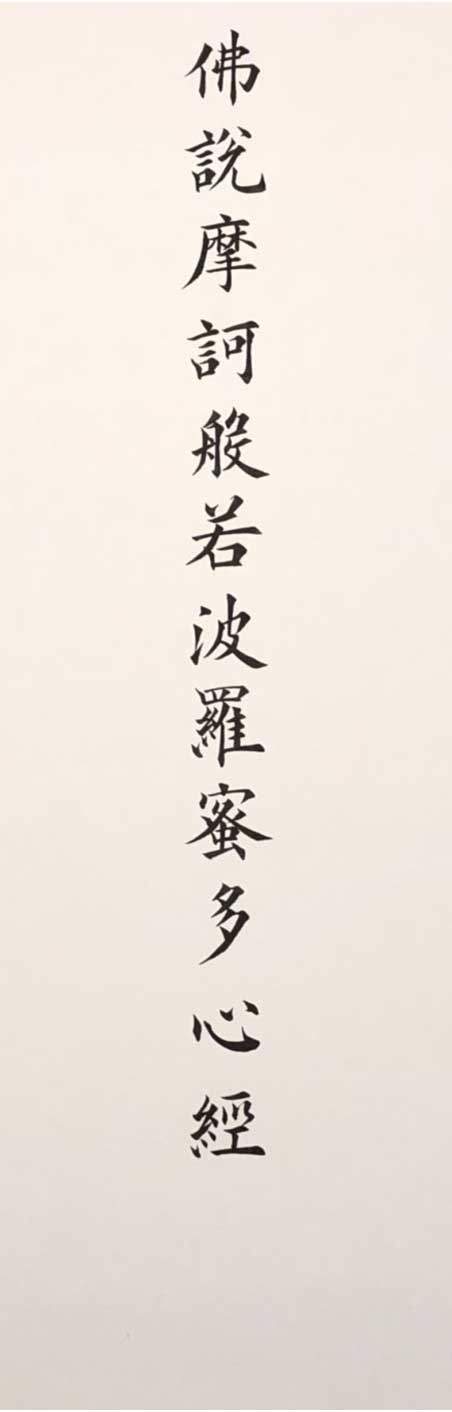 佛說摩訶般若波羅蜜多心經